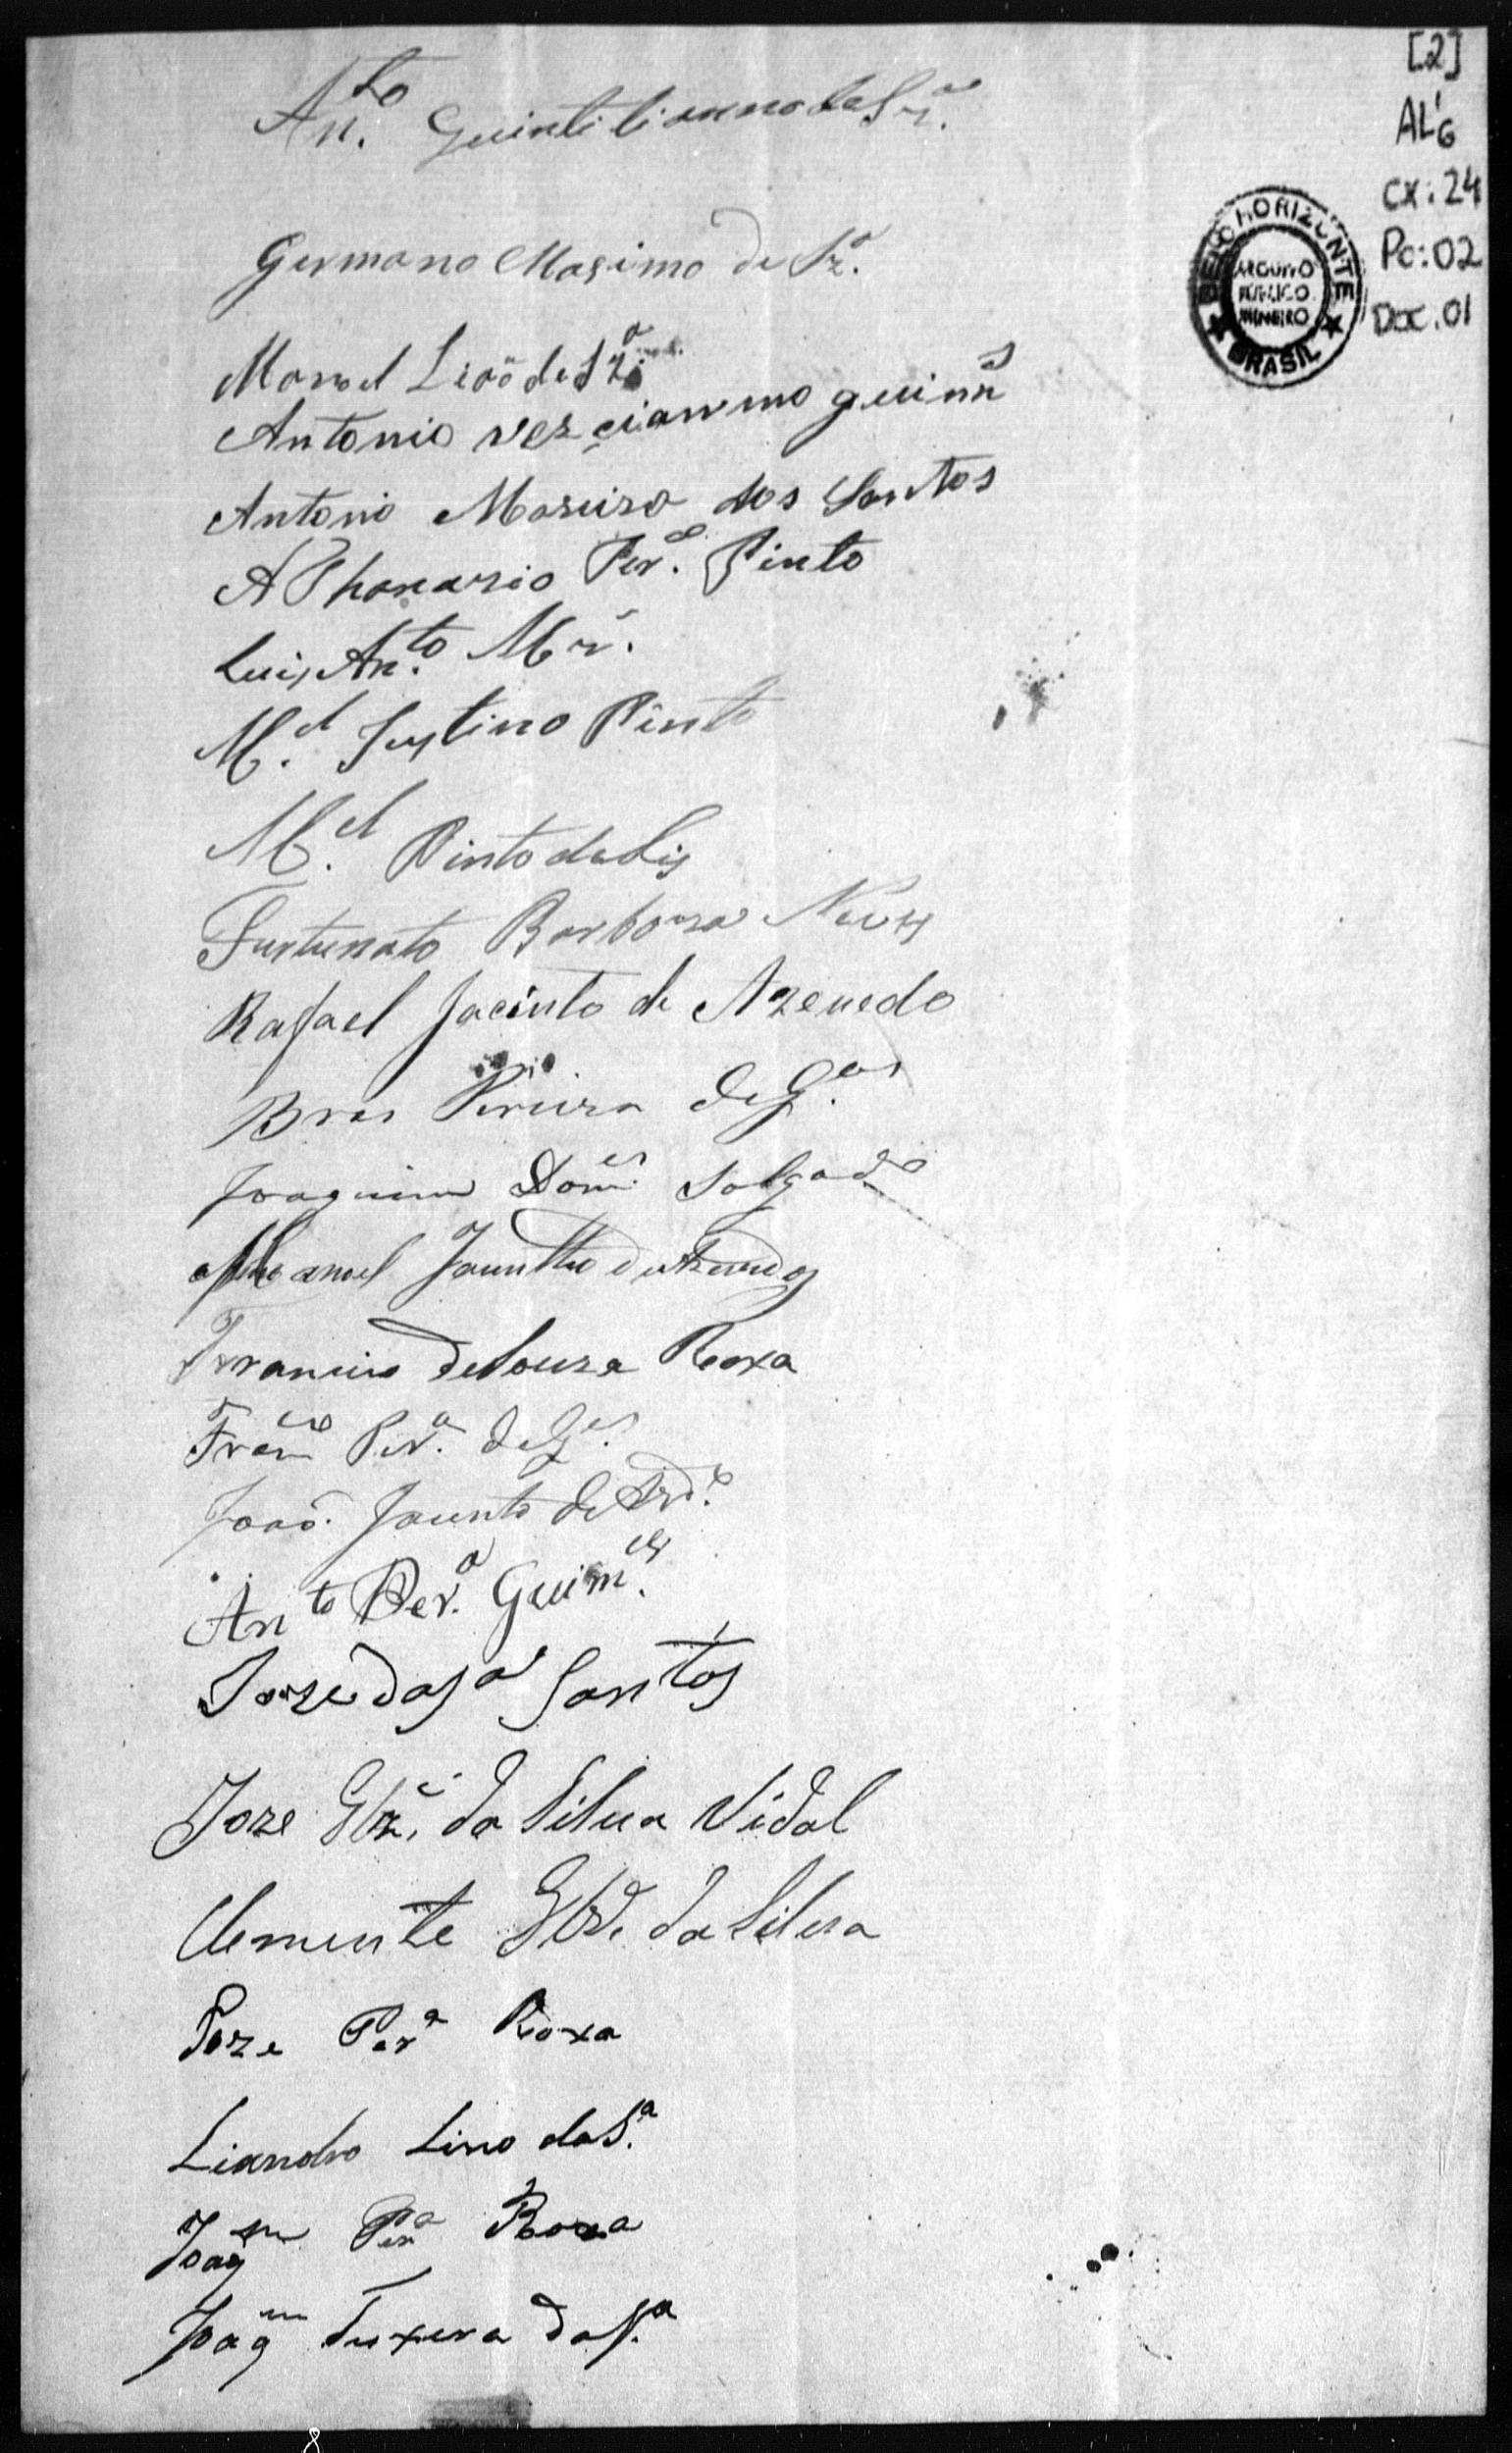 [2]
AL'6
CX: 24
Pc: 02
Doc. 01
BELO HORIZONTE
ARQUIVO
PUBLICO
MINEIRO
BRASIL
An.to Guintilianno de Sz.a
Germano Masimo de Sz.a
Manoel Liaõ de Sz.a
Antonio
Antonio Moreira dos Santos
AThanazio Per.a Pinto
Luis An.to Mr̃.
M.el Justino Pinto
M.el Pinto
Furtunato Barboza Neves
Rafael Jacinto de Azeuedo
Bras Pereira de G.es
Joaquim Dom.es Salgado
Manoel
Francisco de Souza Roxa
Fran.co Per.a de G.es
Joaõ Jacinto de Azd.o
An.to Per.a Guim.es
Joze da S.a Santos
Joze Glz̃. da Silua Vidal
Clemente da Silva
Joze Per.a Roxa
Liandro Lino da S.a
Joaq.m Per.a Roxa
Joaq.m Texera da S.a
8